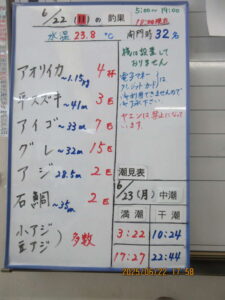 6/22 日 の 釣果
5:00〜19:00
18:00現在
水温 23.8 ℃
開門時 32名
アオリイカ 〜1.15kg 4杯
平スズキ 〜41cm 3匹
アイゴ 〜33cm 7匹
グレ 〜32cm 15匹
アジ 28.5cm 2匹
石鯛 〜35cm 2匹
小アジ
豆アジ
多数
設置して
おりません。
電子マネー
クレジットカード
利用できませんので
ご了承下さい。
ヤエンは禁止になって
います。
潮見表
6/23 (月) 中潮
満潮 干潮
3:22 10:24
17:27 22:44
2025/06/22 17:58